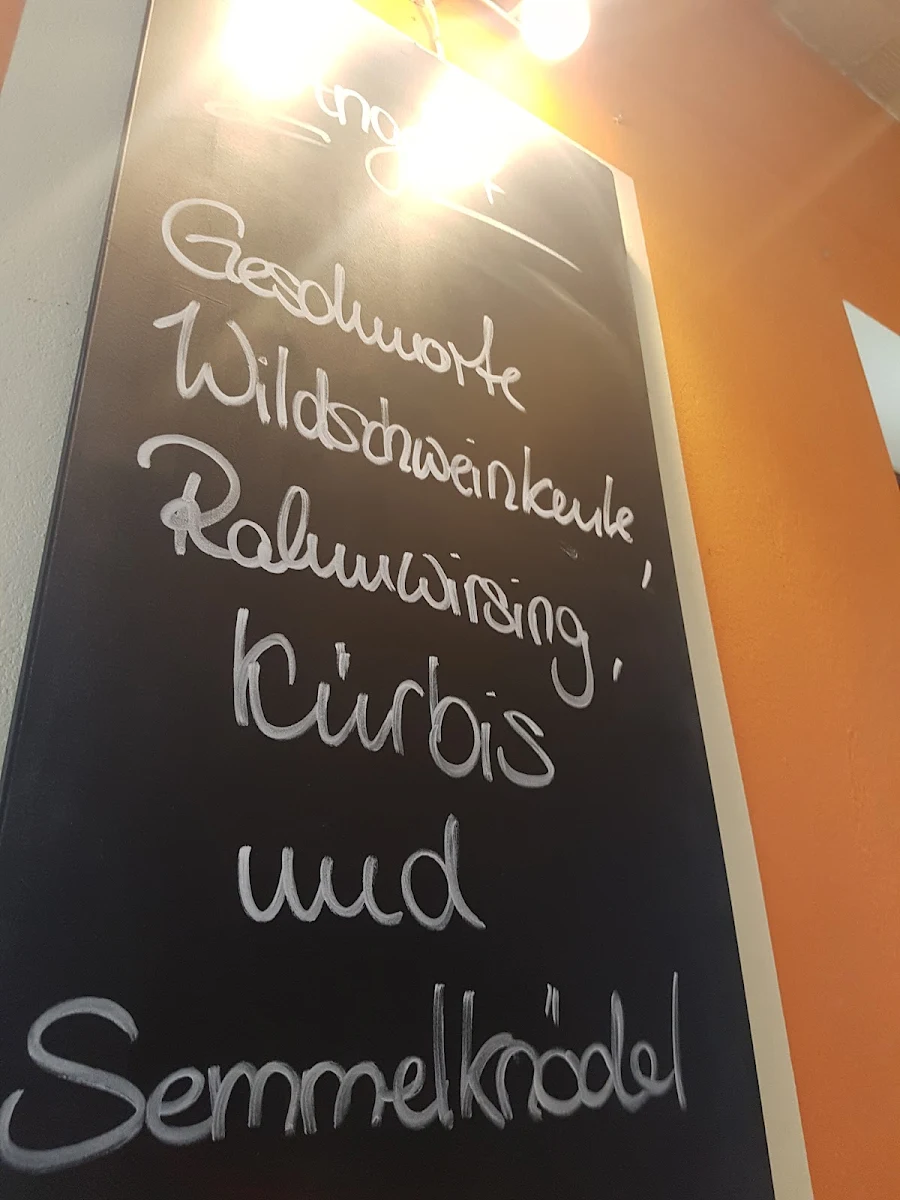 Geschmorte
Wildschweinkeule,
Rahmwirsing,
Kürbis
und
Semmelknödel